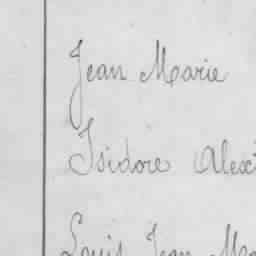 Jean Marie
Isidore Alex
Louis Jean Ma